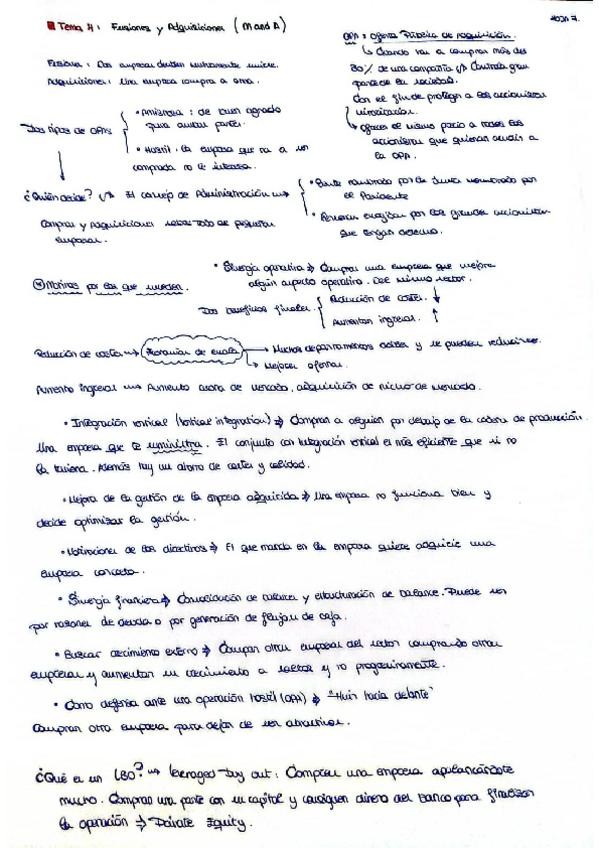 Tema 4: Fusiones y Adquisiciones (M and A)
HOJA 7.
OPA: Oferta Pública de Adquisición.
Cuando vas a comprar más del
30% de una compañía Controla gran
parte de la sociedad.
Con el fin de proteger a los accionistas
minoritarios.
ofreces el mismo precio a todos los
accionistas que quieran acudir a
la OPA.
Fusiones: Dos empresas deciden mutuamente unirse.
Adquisiciones: Una empresa compra a otra.
Dos tipos de OPAs
• Amistosa: de buen agrado
para ambas partes.
• Hostil: la empresa que va a ser
comprada no le interesa.
¿Quién decide? El consejo de Administración
• Parte nombrado por la Junta nombrado por
el Presidente
• Personas elegidas por los grandes accionistas
que tengan
Compras y Adquisiciones sobre todo de pequeñas
empresas.
Motivos por los que suceden.
• Sinergia operativa ⇒ Comprar una empresa que mejora
algún aspecto operativo. Del mismo sector.
Dos beneficios finales
Reducción de costes. ↓
Aumentan ingresos. ↑
Reducción de costes → Economías de escala → Muchos departamentos dobles y se pueden reducirse.
→ Mejores ofertas.
Aumento ingresos → Aumento cuota de mercado, adquisición de nicho de mercado.
• Integración vertical (vertical integration) ⇒ Compran a alguien por debajo de la cadena de producción.
Una empresa que te suministra. El conjunto con integración vertical es más eficiente que si no
la tuviera. Además hay un ahorro de costes y calidad.
• Mejora de la gestión de la empresa adquirida ⇒ Una empresa no funciona bien y
decide optimizar la gestión.
• Motivaciones de los directivos ⇒ El que manda en la empresa quiere adquirir una
empresa concreta.
• Sinergia financiera ⇒ Consolidación de balances y estructuración de balance. Puede ser
por razones de deuda o por generación de flujos de caja.
• Buscar crecimiento externo ⇒ Compran otras empresas del sector comprando otras
empresas y aumentan su crecimiento a saltos y no progresivamente.
• Como defensa ante una operación hostil (OPA) ⇒ "Huir hacia delante"
Compran otra empresa para dejar de ser atractivos.
¿Qué es un LBO? → leveraged buy out: Compras una empresa apalancándote
mucho. Compran una parte con su capital y consiguen dinero del banco para finalizar
la operación ⇒ Private Equity.